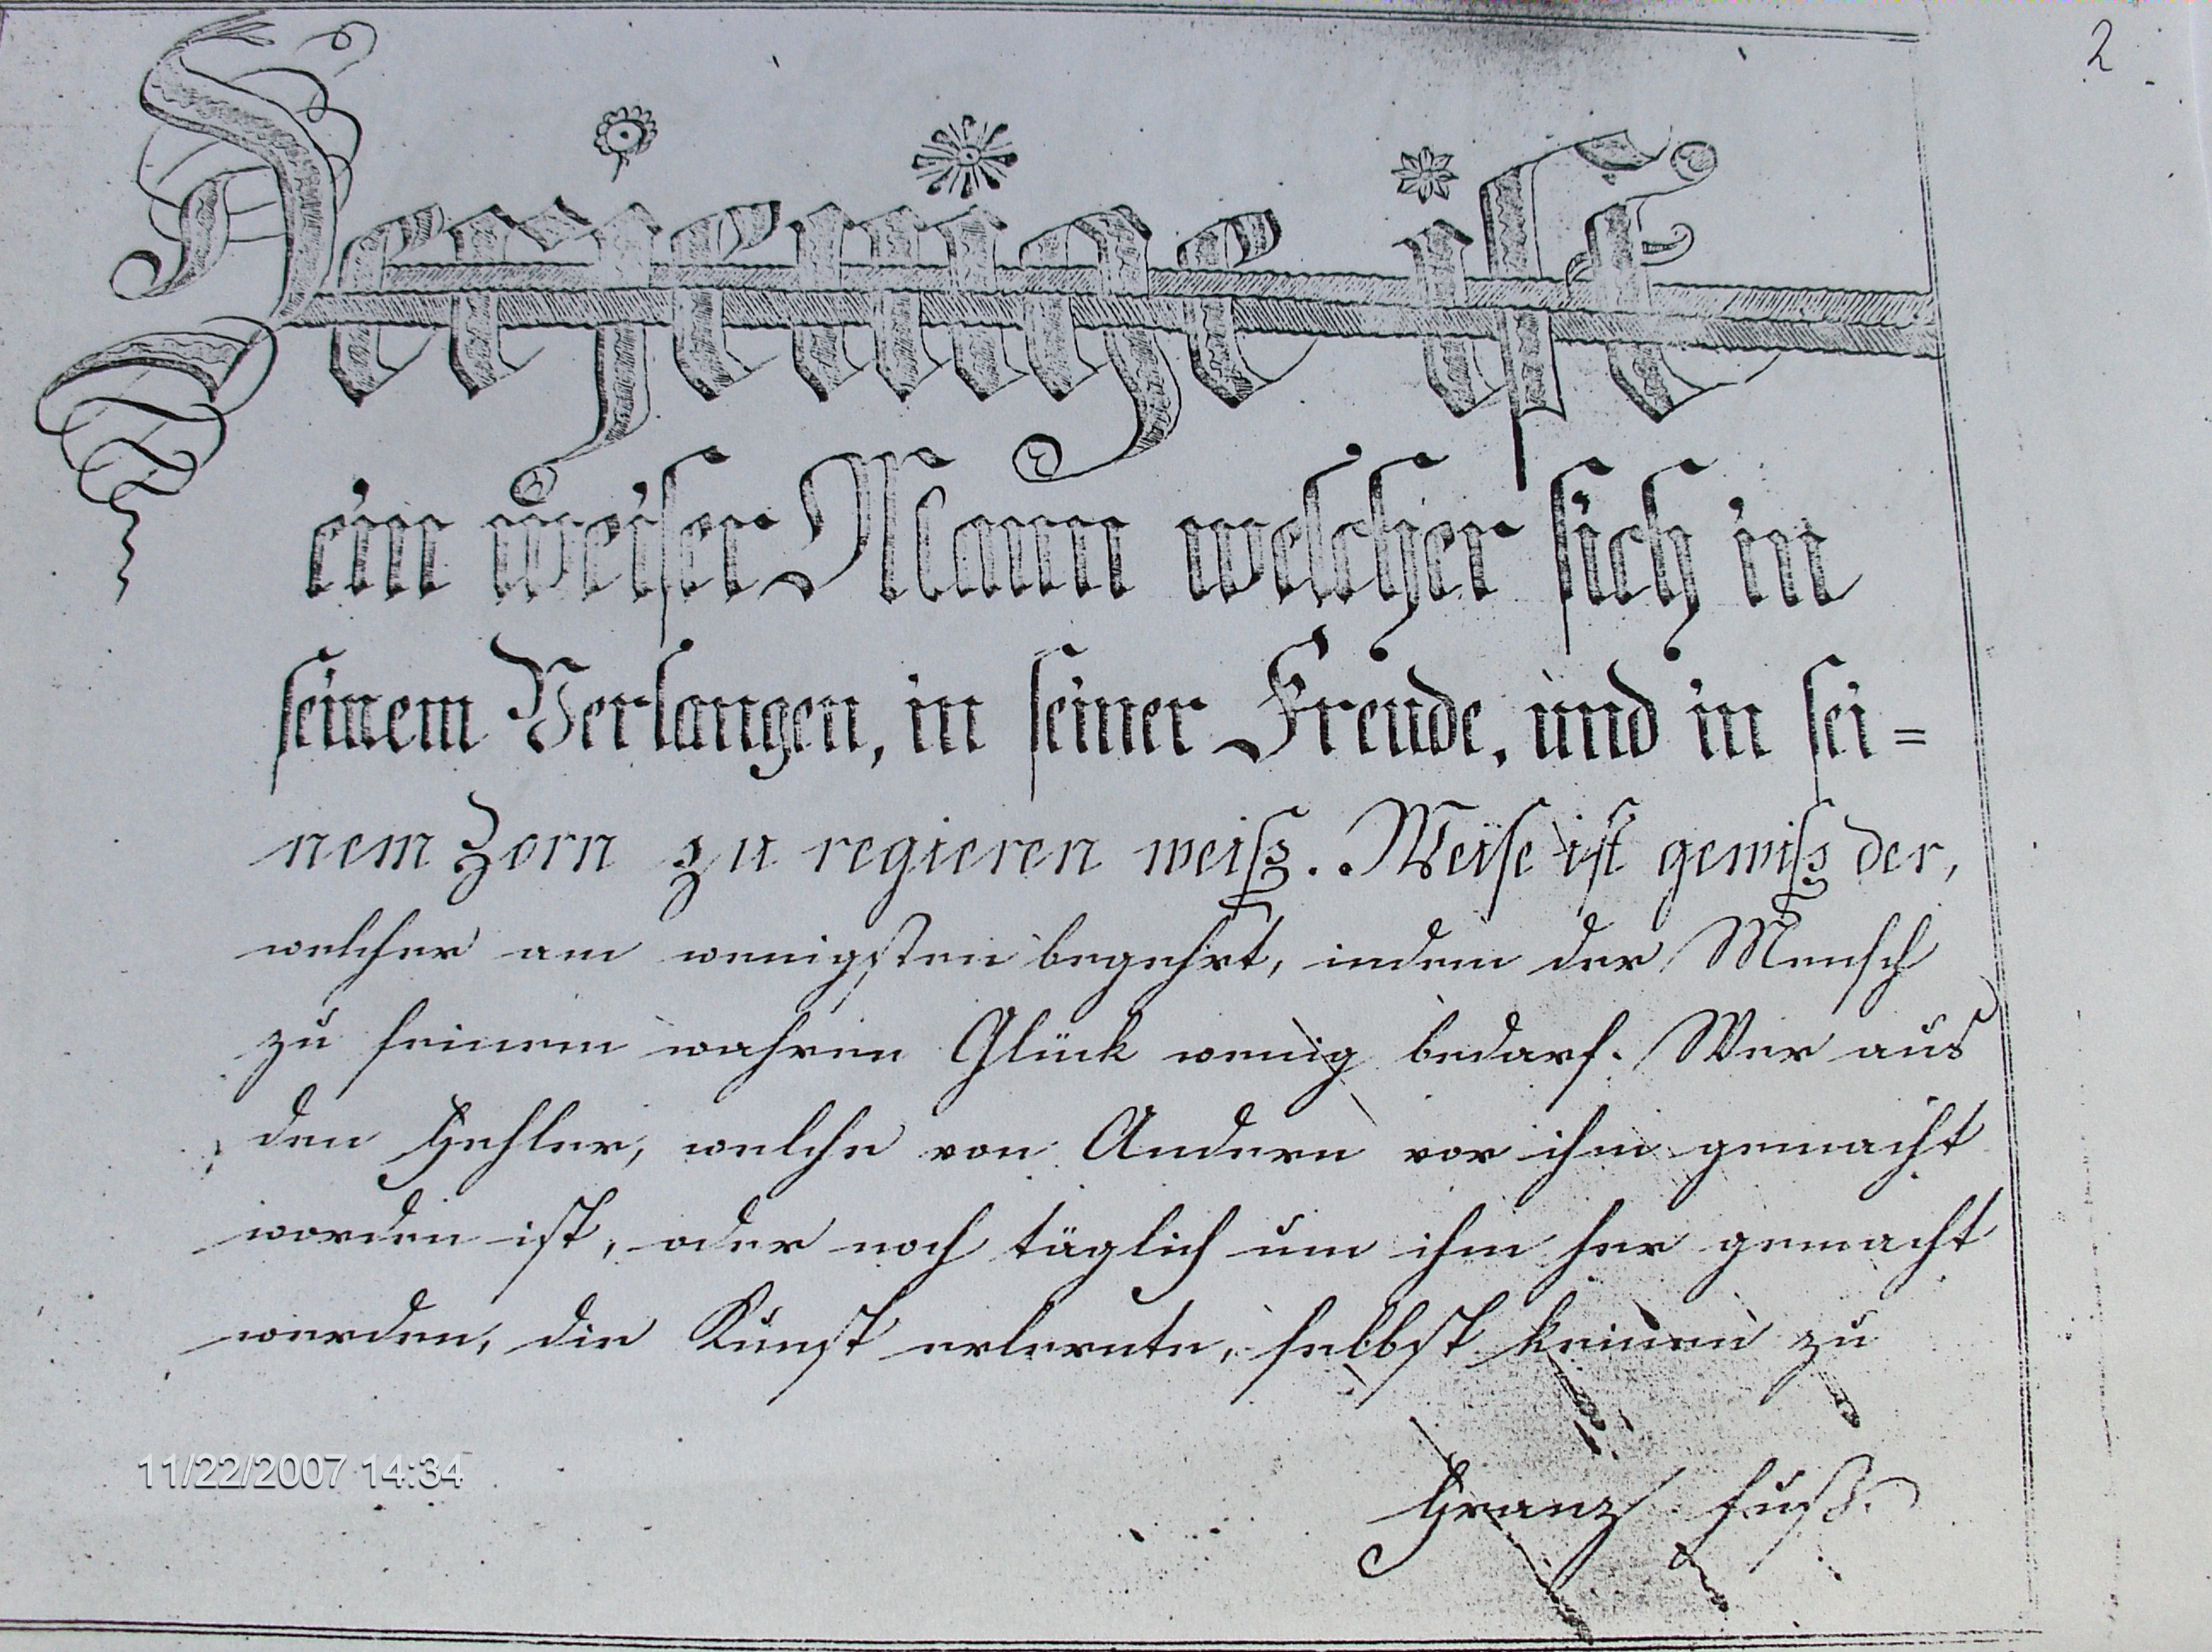 2
Derjenige ist
ein weiser Mann welcher sich in
seinem Verlangen, in seiner Freude, und in sei=
nem Zorn zu regieren weiß. Weise ist gewiß der,
welcher am wenigsten begehrt, indem der Mensch
zu seinem wahren Glück wenig bedarf. Wer aus
den Fehler, welche von Andern vor ihm gemacht
worden ist, oder noch täglich um ihm her gemacht
werden, die Kunst erlernte, selbst keinen zu
11/22/2007 14:34
Franz